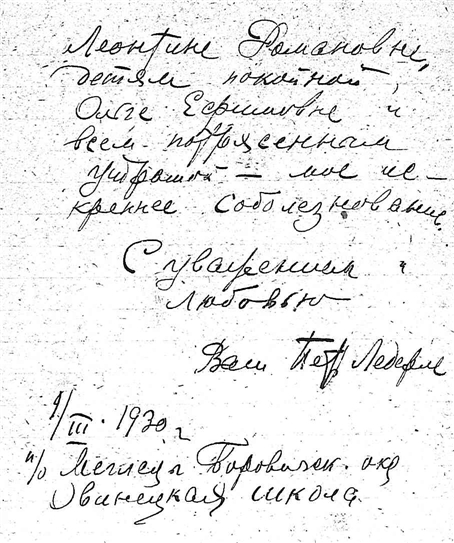 Леонтине Романовне,
детям покойной,
Ольге Ефимовне и
всем потрясенным
утратой — мое ис-
креннее соболезнование.
С уважением и
любовью
Ваш Петр Ледерле
1/III. 1930 г
п/о Меглецы Боровичск. окр
Овинецкая школа.